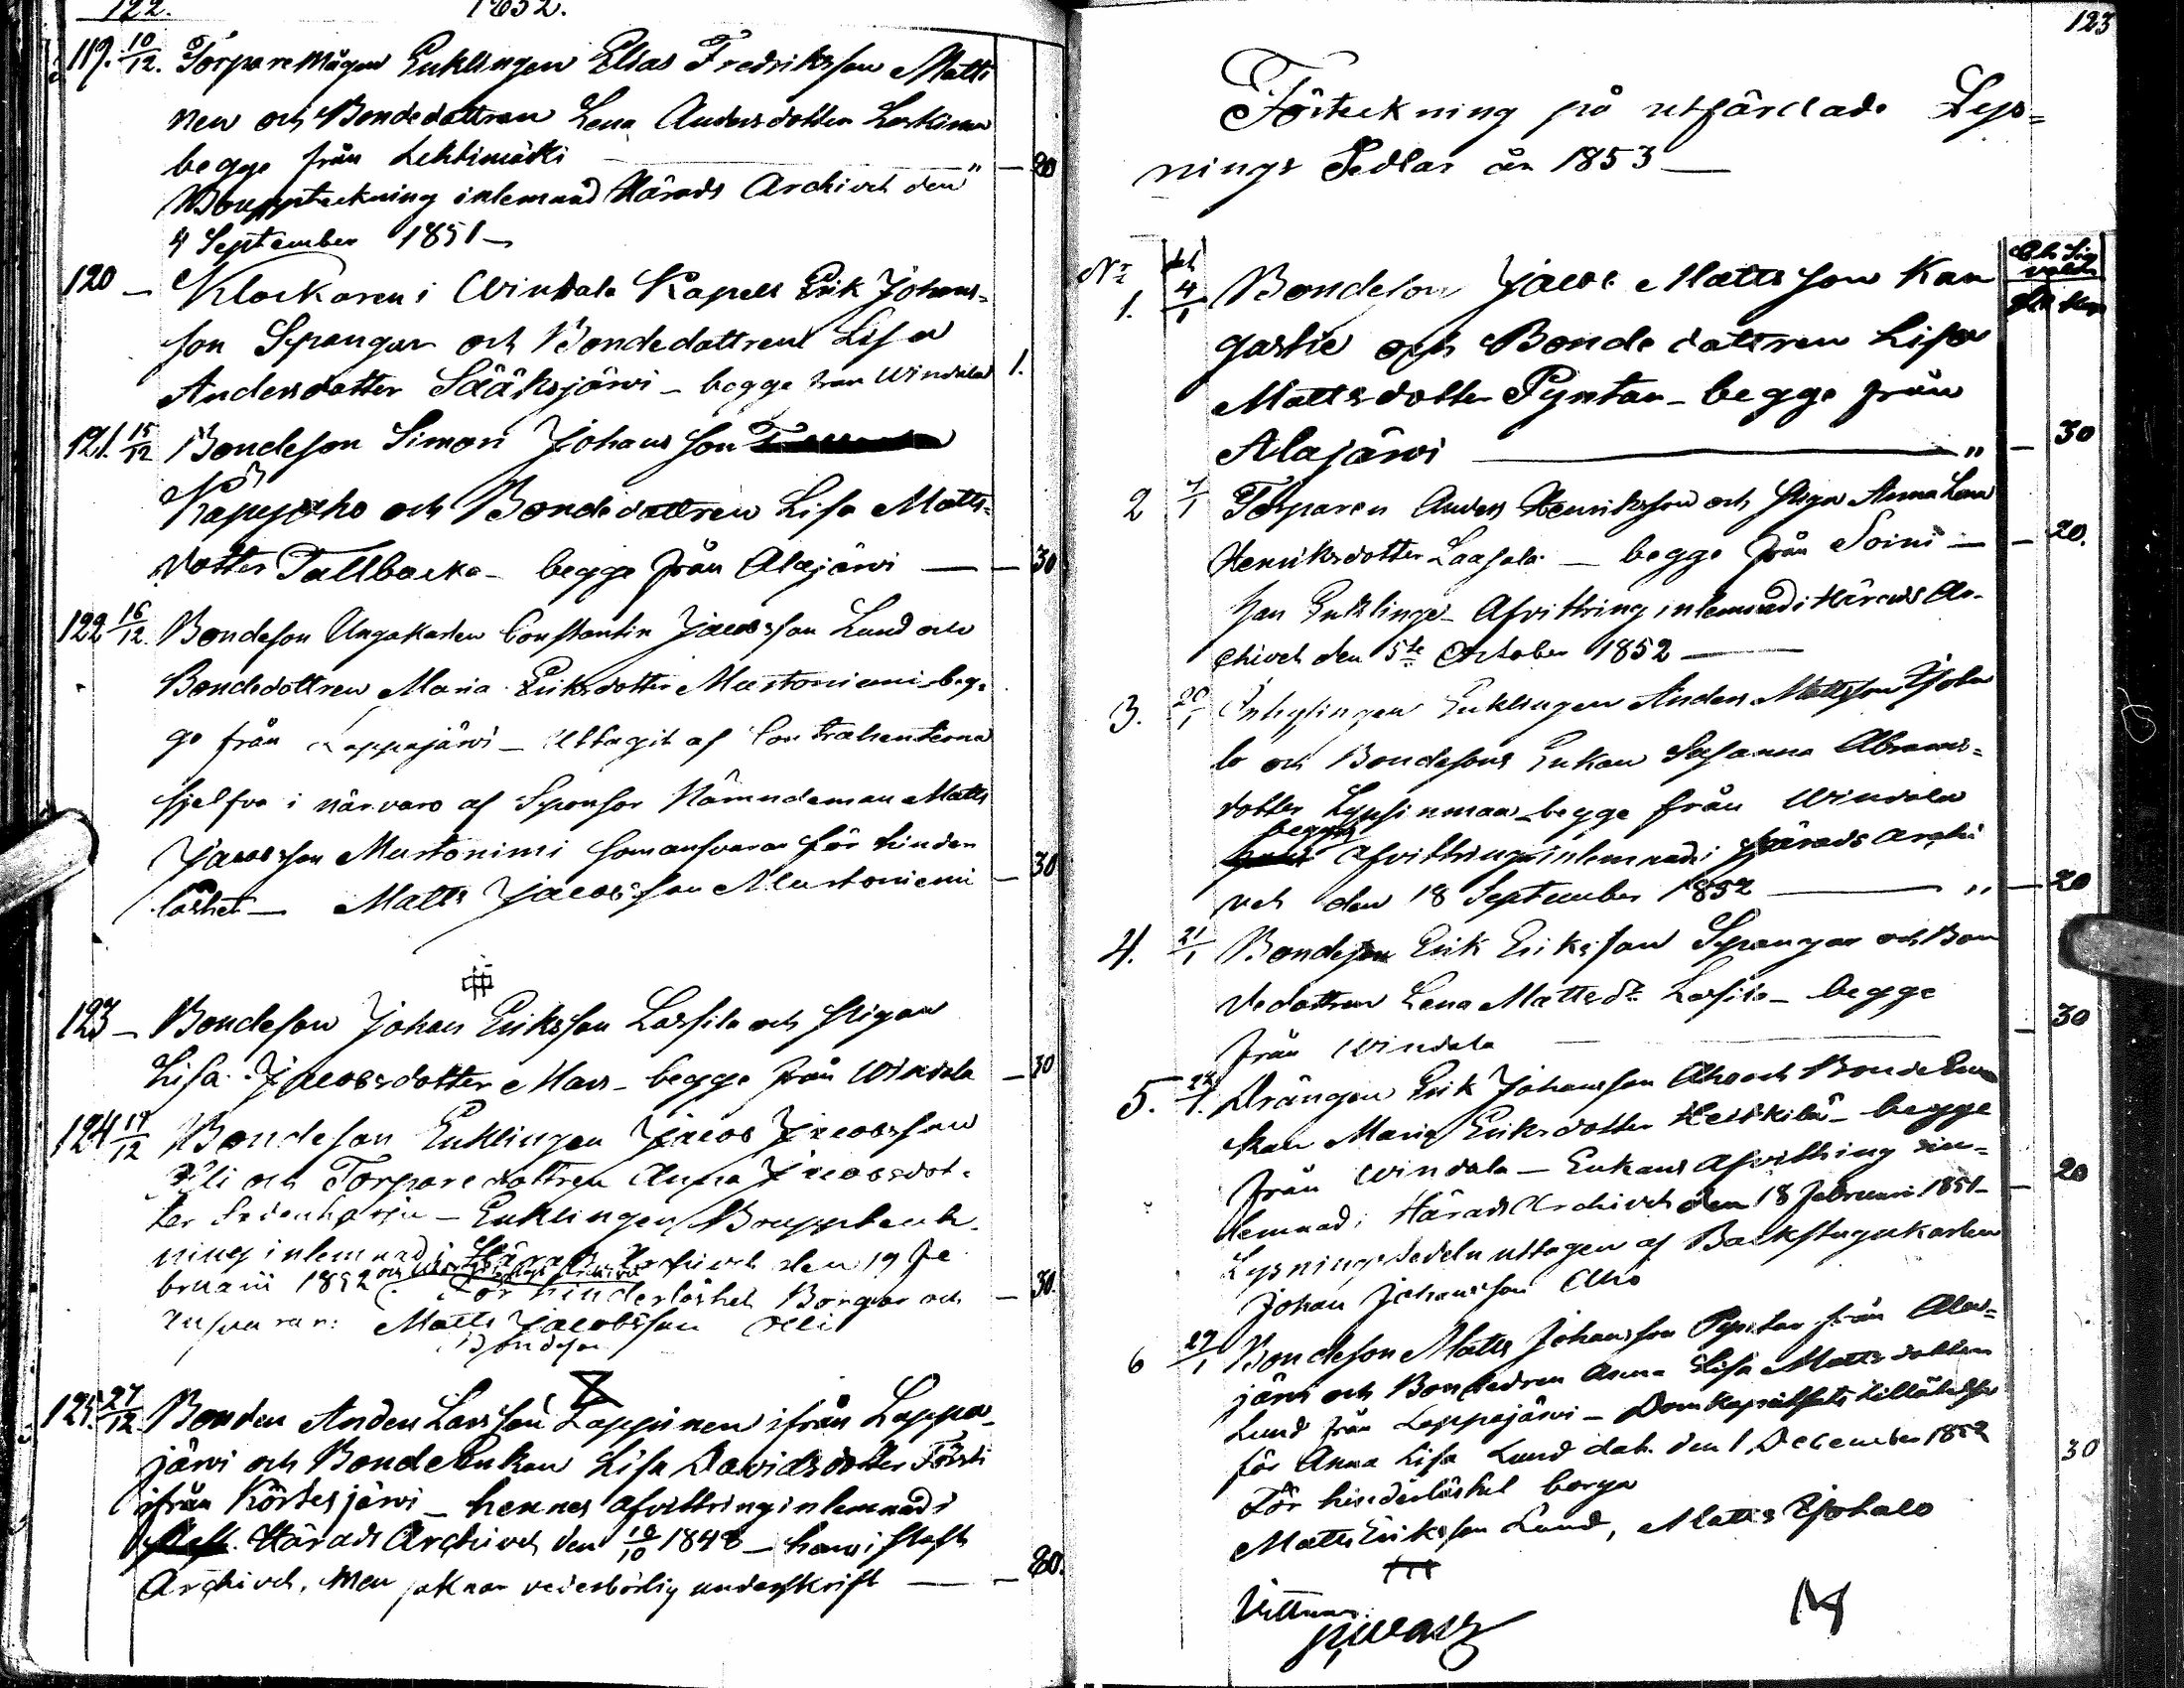 122. 1852.
119. 10/12. Torparemågen Enklingen Elias Fredriksson Matti
nen och Bondedottren Lena Andersdotter Leskinen
begge från Lehtimäki — " — 20
Bouppteckning inlemnad Härads Archivet den
4 September 1851 —
120 — Klockaren i Windala Kapell Erik Johans-
son Spangar och Bondedottren Lisa
Andersdotter Sääksjärvi – begge från Windala 1.
121. 15/12 Bondeson Simon Johansson
Kapejoho och Bondedottren Lisa Matts-
dotter Tallbacka – begge från Alajärvi — — 30
122 16/12. Bondeson Ungakarlen Constantin Jacobsson Lund och
Bondedottren Maria Eriksdotter Mustoniemi – beg-
ge från Lappajärvi – Uttagit af Contrahenterna
sjelfva i närvaro af Sponsor Nämndeman Matts
Jacobsson Mustonimi som ansvarar för hinder
löshet — Matts Jacobsson Mustoniemi — 30
123 — Bondeson Johan Eriksson Lassila och Pigan
Lisa Jacobsdotter Hars – begge från Windala — 30
124 17/12 Bondeson Enklingen Jacob Jacobsson
Ylli och Torparedottren Anna Jacobsdot-
ter – Enklingens Bouppteck-
ning inlemnad i Härads Archivet den 19 Fe
bruarii 1852 För hinderlöshet Borgar och
ansvarar: Matts Jacobsson Ylli — 30.
Bondeson
125. 27/12. Bonden Anders Larsson Lappinen ifrån Lappa-
järvi och BondeEnkan Lisa Davidsdotter Försti
ifrån Kortesjärvi – hennes afvittring inlemnad i
Härads Archivet den 18/10 1848 – hans i Stads
Archivet, men saknar vederbörlig underskrift — — 80.
123
Förteckning på utfärdade Lys-
nings Sedlar år 1853 —
Nr
1. 4/1 Bondeson Jacob Mattsson Kan
gastie och Bondedottren Lisa
Mattsdotter Pyntan – begge från
Alajärvi — " — 30
2 7/1 Torparen Anders Henriksson och Pigan Anna Lena
Henriksdotter Laasala — begge från Soini — — 20.
han Enklinge – Afvittring inlemnad i Härads Ar-
chivet den 5te October 1852 —
3. 20/1 Inhysingen Enklingen Anders Mattsson Ojoha
lo och Bondesons Enkan Susanna Abrams-
dotter Lypsinmaa – begge från Windala
begges afvittring inlemnad i Härads archi
vet den 18 September 1852 — " — 20
4. 21/1 Bondeson Erik Eriksson Spangar och Bon
dedottren Lena Mattsdr Lassila – begge
från Windala — — 30
5. 22/1. Drängen Erik Johansson Aho och BondeEn
kan Maria Eriksdotter Heikkilä – begge
från Windala – Enkans Afvittring in-
lemnad i Härads Archivet den 18 Februari 1851 – — 20
Lysningssedeln uttagen af Backstugukarlen
Johan Johansson Aho
6 27/1 Bondeson Matts Johansson Pyntar från Ala-
järvi och Bondedren Anna Lisa Mattsdotter
Lund från Lappajärvi – Domkapitlets tillåtelse
för Anna Lisa Lund dat. den 1 December 1852 30
För hinderlöshet borga
Matts Eriksson Lund, Matts Ojohalo
Vittnar: